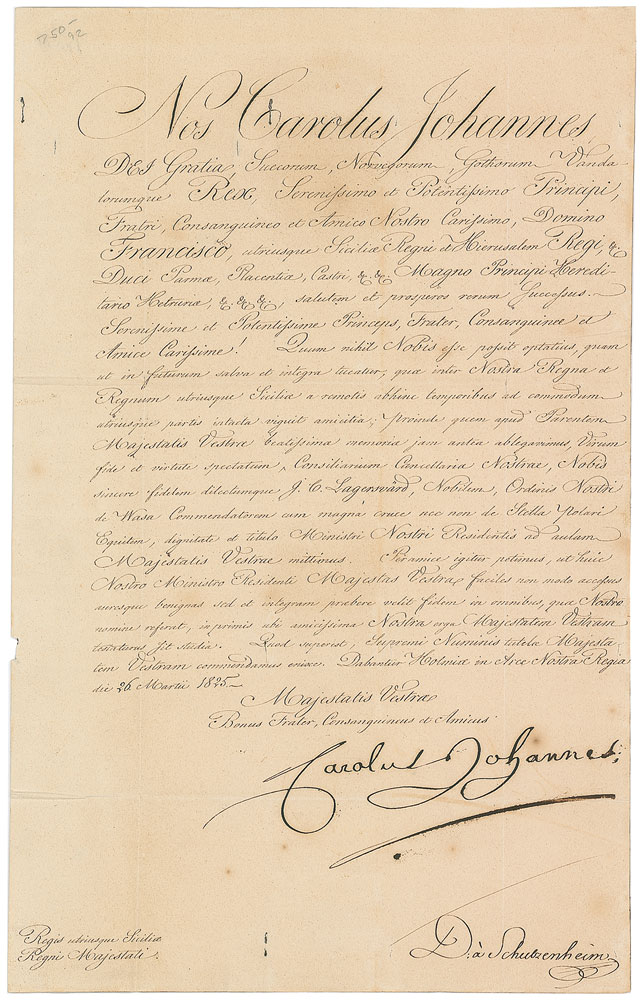 250-
92
Nos Carolus Johannes
DEI Gratia, Suecorum, Norvegorum, Gothorum Vanda
lorumque Rex, Serenissimo et Potentissimo Principi,
Fratri, Consanguineo et Amico Nostro Carissimo, Domino
Francisco, utriusque Siciliæ Regni et Hierusalem Regi, &.
Duci Parmæ, Placentiæ, Castri, &. &. Magno Principi Heredi-
tario Hetruriæ, &. &. &., salutem et prosperos rerum Successus.
Serenissime et Potentissime Princeps, Frater, Consanguinee et
Amice Carissime! Quum nihil Nobis esse possit optatius, quam
ut in futurum salva et integra tueatur, quæ inter Nostra Regna et
Regnum utriusque Siciliæ a remotis abhinc temporibus ad commodum
utriusque partis intacta viguit amicitia; proinde quem apud Parentem
Majestatis Vestræ beatissimæ memoriæ jam antea ablegavimus, Virum
fide et virtute spectatum, Consiliarium Cancellariæ Nostrae, Nobis
sincere fidelem dilectumque J. C. Lagersvärd, Nobilem, Ordinis Nostri
de Wasa Commendatorem cum magna cruce nec non de Stella Polari
Equitem, dignitate et titulo Ministri Nostri Residentis ad aulam
Majestatis Vestrae mittimus. Peramice igitur petimus, ut huic
Nostro Ministro Residenti Majestas Vestra faciles non modo accessus
auresque benignas sed et integram præbere velit fidem in omnibus, quæ Nostro
nomine referat, in primis ubi amicissima Nostra erga Majestatem Vestram
testaturus sit studia. Quod superest, Supremi Numinis tutelæ Majesta
tem Vestram commendamus enixe. Dabantur Holmiæ in Arce Nostra Regia
die 26 Martii 1825
Majestatis Vestræ
Bonus Frater, Consanguineus et Amicus
Carolus Johannes
Regis utriusque Siciliæ
Regni Majestati.
D. à Schutzenheim